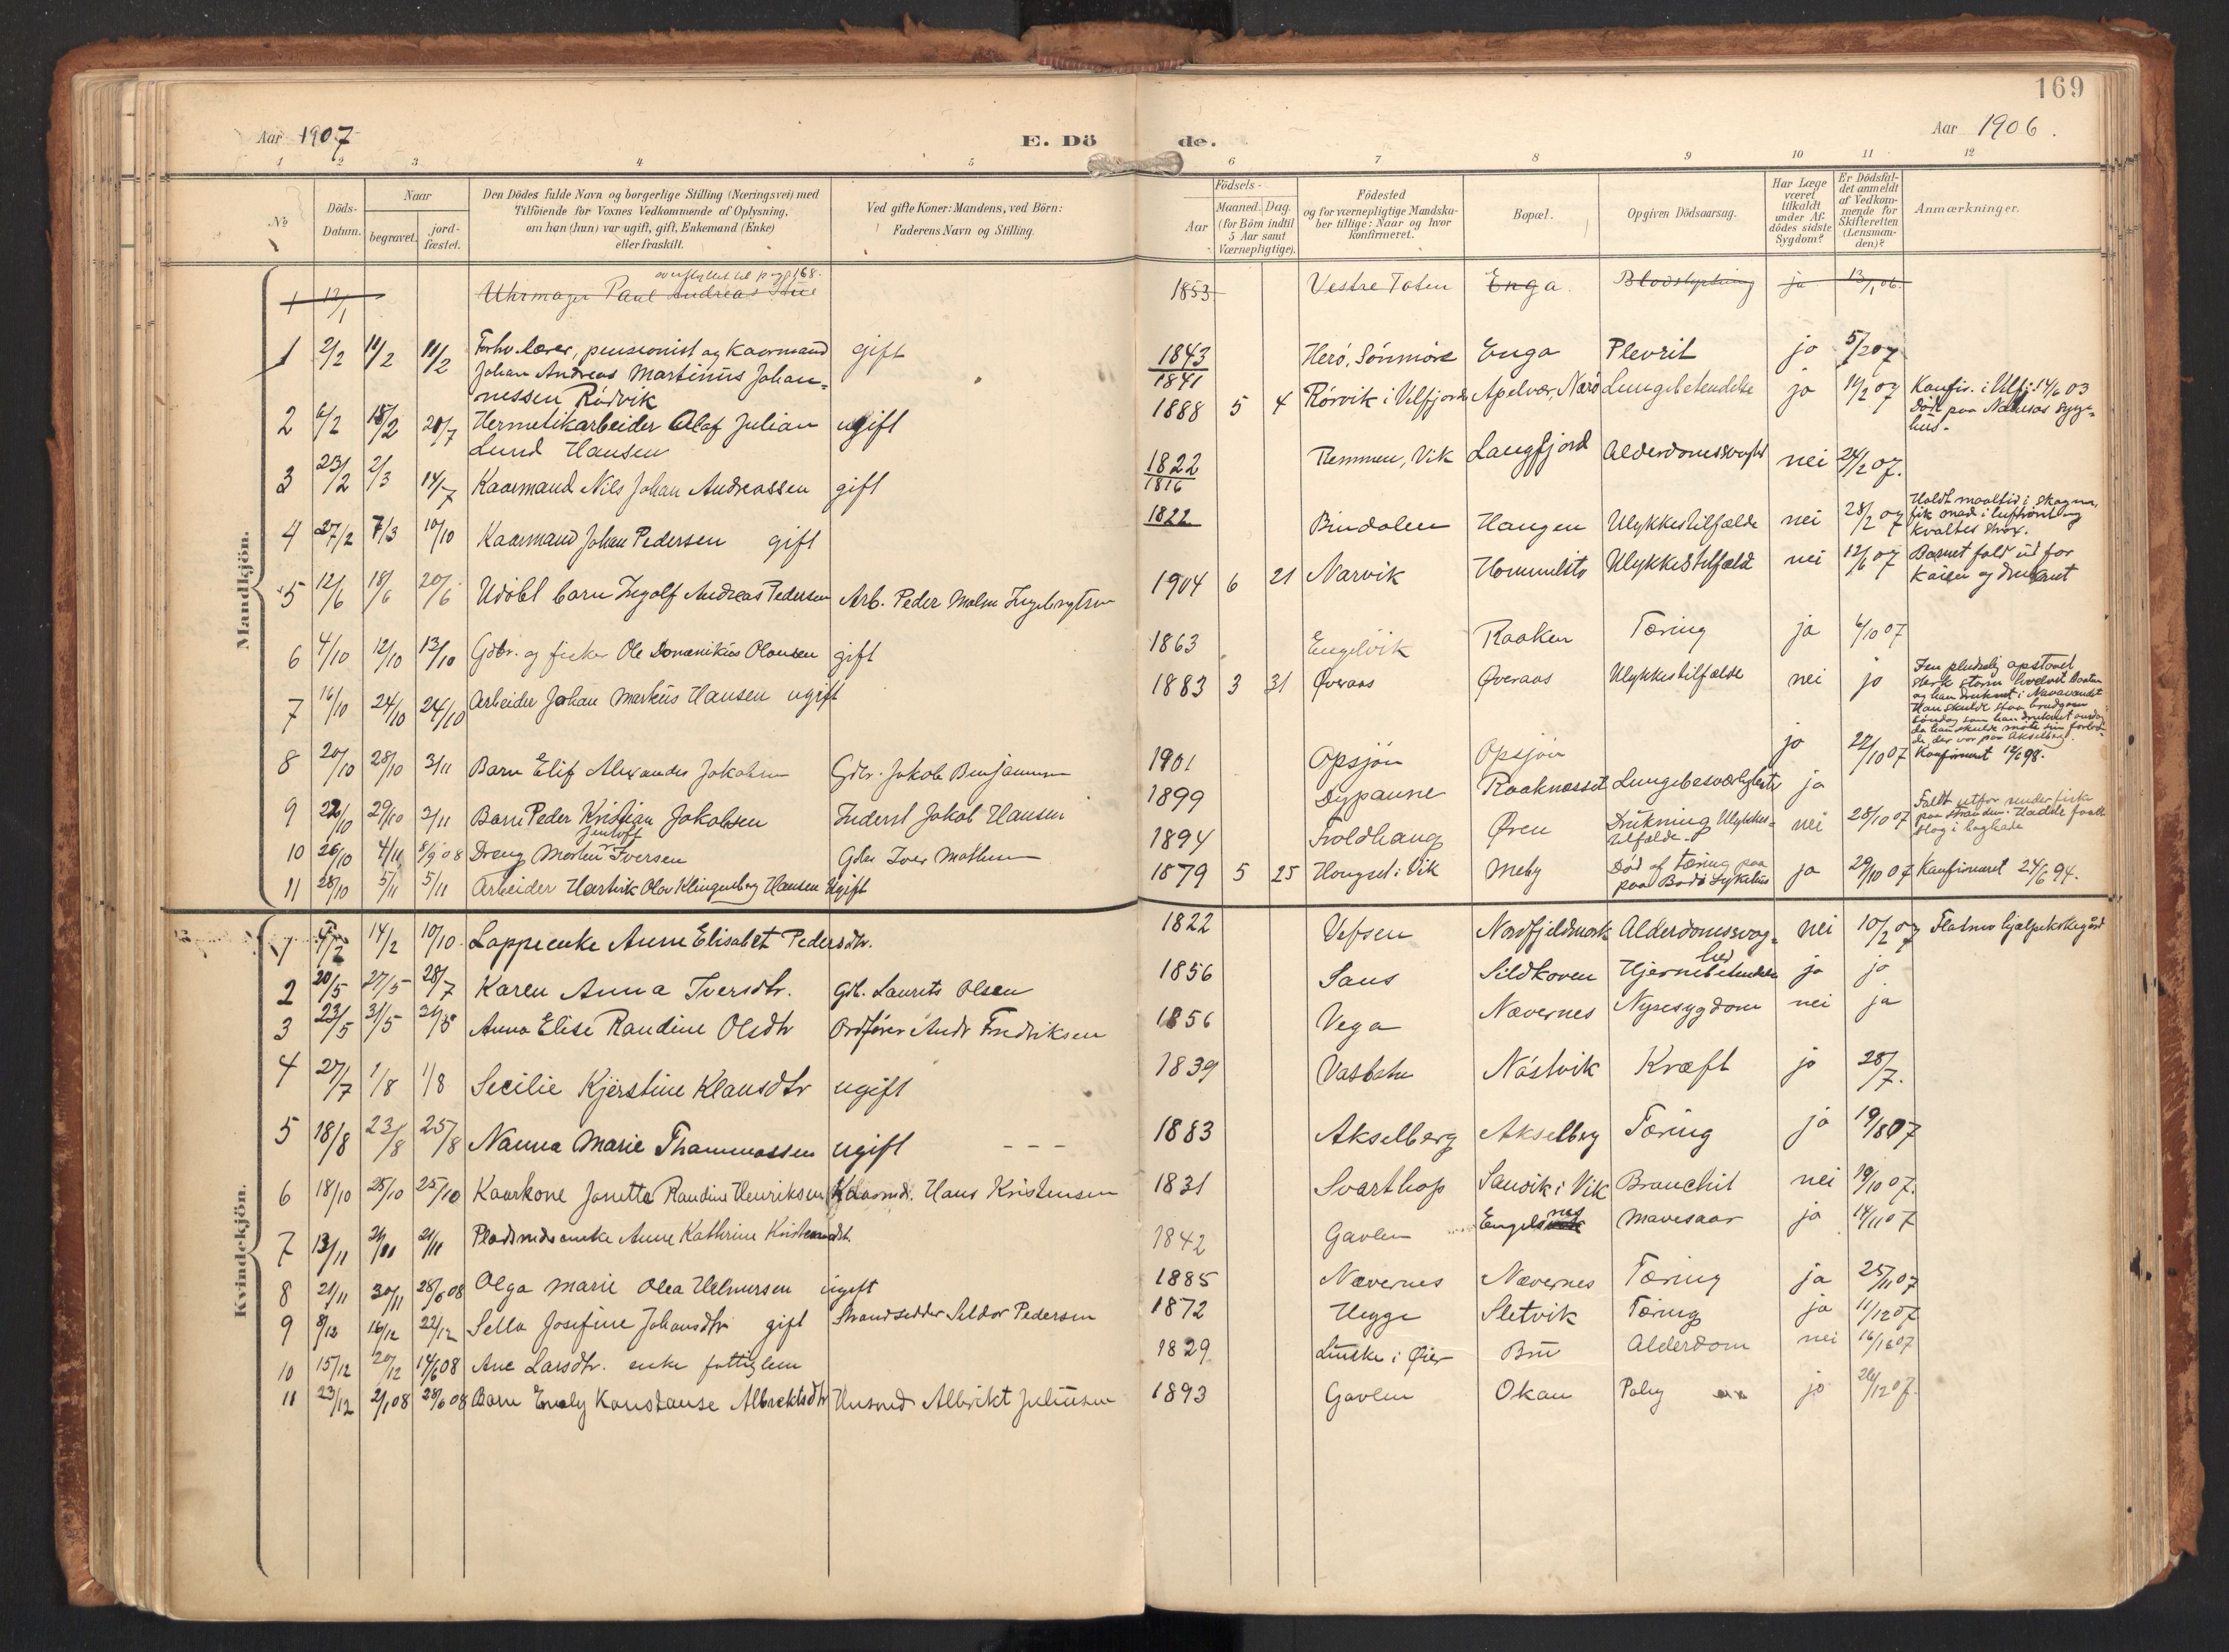 169
Aar 1907
E. Dö
de.
Aar 1906.
1 2 3 4 5 6 7 8 9 10 11 12
No
Döds-Datum.
Naar
begravet.
jord-fæstet.
Den Dödes fulde Navn og borgerlige Stilling (Næringsvei) med
Tilföiende for Voxnes Vedkommende af Oplysning,
om han (hun) var ugift, gift, Enkemand (Enke)
eller fraskilt.
Ved gifte Koner: Mandens, ved Börn:
Faderens Navn og Stilling.
Födsels-
Aar
Maaned. Dag.
(for Börn indtil
5 Aar samt
Værnepligtige).
Födested
og for værnepligtige Mandska-
ber tillige: Naar og hvor
konfirmeret.
Bopæl.
Opgiven Dödsaarsag.
Har Læge
været
tilkaldt
under Af-
dödes sidste
Sygdom?
Er Dödsfal-
det anmeldt
af Vedkom-
mende for
Skifteretten
(Lensman-
den)?
Anmærkninger.
Mandkjön.
168.
1 12/1 Uhrmager Paul Andreas 1853 Vestre Toten Enga ja 13/1 06.
1 2/2 11/2 11/2 Forhv. lærer, pensionist og Kaarmand gift 1843 Herö, Sönmöre Enga Plevrit ja 5/2 07
Johan Andreas Martinus Johan- 1841
nessen Rödvik
2 6/2 18/2 20/7 Hermetikarbeider Olaf Julian ugift 1888 5 4 Rörvik i Velfjord Apelvær, Nærö Lungebetendelse ja 11/2 07 Konfir. i Velfj. 14/6 03
Lund Hansen Död paa Namsos syge-
hus.
3 23/2 2/3 14/7 Kaarmand Nils Johan Andreassen gift 1822 Remmen, Vik Langfjord Alderdomssvaghed nei 24/2 07.
1816
4 27/2 7/3 10/10 Kaarmand Johan Pedersen gift 1822 Bindalen Haugen Ulykkestilfælde nei 28/2 07 Holdt maaltid i skogen,
fik mad i luftröret og
kvaltes strax.
5 12/6 18/6 20/6 Udöbt barn Ingolf Andreas Pedersen Arb. Peder Malm 1904 6 21 Narvik Ulykkestilfæld nei 12/6 07 Barnet fald ud for
Kaien og druknet
6 4/10 12/10 13/10 Gdbr. og fisker Ole Domenikus Olausen gift 1863 Engelvik Raaken Tæring ja 6/10 07
7 16/10 24/10 24/10 Arbeider Johan Markus Hansen ugift 1883 3 31 Øveraas Øveraas Ulykkestilfælde nei jo I en pludselig opstanet
sterk storm hvelvet Baaten
og han druknet i
Han skulde staa brudgom
söndag som han druknet
da han skulde møte sin
der var paa Akselberg.
Konfirmeret 12/6 98.
8 20/10 28/10 3/11 Barn Elif Alexander Jakobsen Gdbr. Jakob Benjaminsen 1901 Opsjön Opsjön jo 22/10 07
9 22/10 29/10 3/11 Barn Peder Kristian Jakobsen Inderst Jakob Hansen 1899 Dypaune Raaknæsset Lungebesværligheter ja
10 26/10 4/11 8/9 08 Dreng Morten Iversen Gdbr. Iver Mathsen 1894 Troldhaug Øren Drukning Ulykkes- nei 28/10 07 Faldt utfor under fiske
tilfælde. paa stranden. Hadde faat
slag i baghode
11 28/10 5/11 5/11 Arbeider Hartvik Olav Klingenberg Hansen Ugift 1879 5 25 Hongset i Vik Meby Död af tæring paa ja 29/10 07 Konfirmeret 24/6 94.
paa Bodö Sykehus
Kvindekjön.
1 14/2 10/10 Lappeenke Anne Elisabet Pedersdtr. 1822 Vefsen Nordfjeldmark Alderdomssvag- nei 10/2 07 Flatmo hjælpekirkegård
hed
2 20/5 27/5 28/7 Karen Anna Iversdtr. Gdb. Laurits Olsen 1856 Saus Sildkoven Hjernebetendelse jo jo
3 23/5 31/5 Anna Elise Randine Olsdtr Ordförer Andr Fredriksen 1856 Vega Nævernes Nyresygdom nei ja
4 27/7 1/8 1/8 Secilie Kjerstine Klausdtr ugift 1839 Vasbotn Nästvik Kræft jo 28/7.
5 18/8 23/8 25/8 Nanna Marie Thommassen ugift - - - 1883 Akselberg Akselberg Tæring jo 19/8 07
6 18/10 25/10 25/10 Kaarkone Janette Randine Henriksen Kaarmd. Hans Kristensen 1831 Svarthop Sausik i Vik Bronchit nei 19/10 07.
7 13/11 21/11 21/11 Pladsmdsenke Anne Kathrine 1842 Gavlen Engelsnes Mavesaar ja 14/11 07
8 21/11 30/11 28/6 08 Olga Marie Olea Helmersen ugift 1885 Nævernes Nævernes Tæring ja 25/11 07
9 8/12 16/12 22/12 Sella Josefine Johansdtr gift Strandsidder Seldor Pedersen 1872 Hegge Sletvik Tæring ja 11/12 07
10 15/12 20/12 14/6 08 Ane Larsdtr. enke fattiglem 1829 i Øier Bru Alderdom nei 16/12 07
11 23/12 2/1 08 28/6 08 Barn Emely Konstanse Albrektsdtr Husmd Albrikt Juliussen 1893 Gavlen Okan jo 26/12 07.